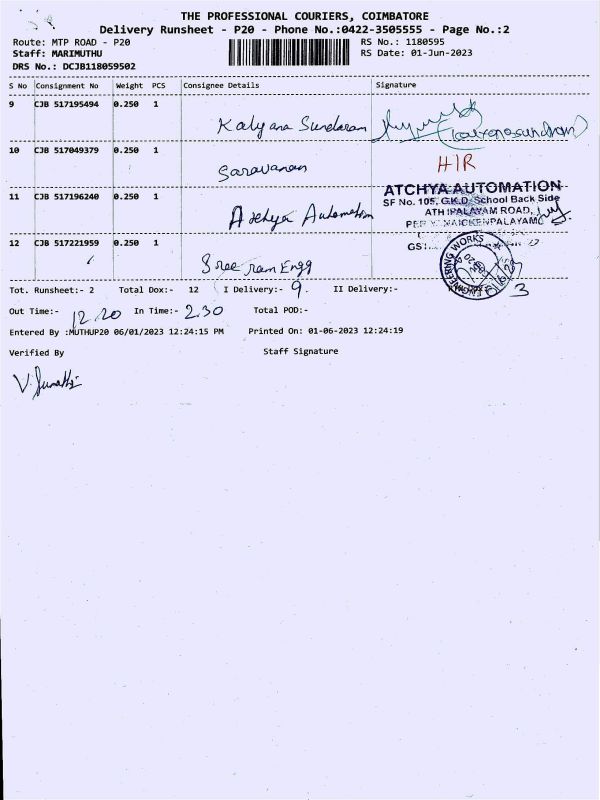 THE PROFESSIONAL COURIERS, COIMBATORE
Delivery Runsheet - P20 - Phone No.:0422-3505555 - Page No.:2
Route: MTP ROAD - P20 RS No.: 1180595
Staff: MARIMUTHU RS Date: 01-Jun-2023
DRS No.: DCJB118059502
S No Consignment No Weight PCS Consignee Details Signature
9 CJB 517195494 0.250 1
Kalyana Sundaram
10 CJB 517049379 0.250 1
Saravanan H/R
11 CJB 517196240 0.250 1
Atchya Automation
ATCHYA AUTOMATION
SF No. 105, G.K.D. School Back Side
ATHIPALAYAM ROAD,
NAICKENPALAYAM
GST
12 CJB 517221959 0.250 1
Sree ram Engg
ENGINEERING WORKS
Tot. Runsheet:- 2 Total Dox:- 12 I Delivery:- 9 II Delivery:-
Out Time:- 12.20 In Time:- 2.30 Total POD:-
Entered By :MUTHUP20 06/01/2023 12:24:15 PM Printed On: 01-06-2023 12:24:19
Verified By Staff Signature